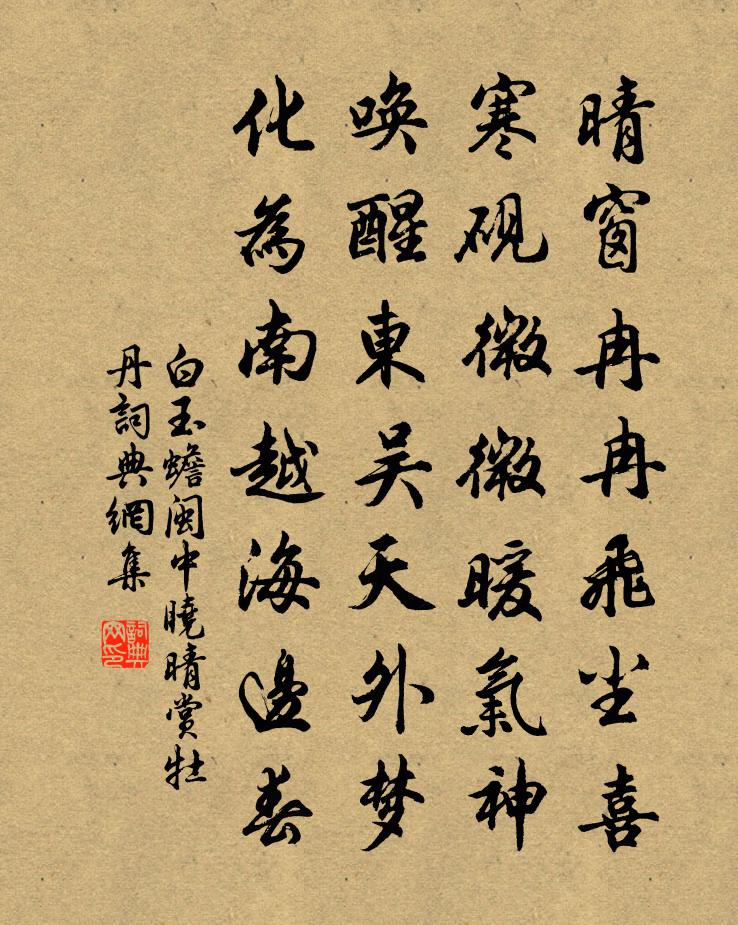 晴窗冉冉飛尘喜
寒硯微微暖氣神
喚醒東吴天外梦
化為南越海邊春
白玉蟾閩中曉晴赏牡
丹詞典網集
詞典网印